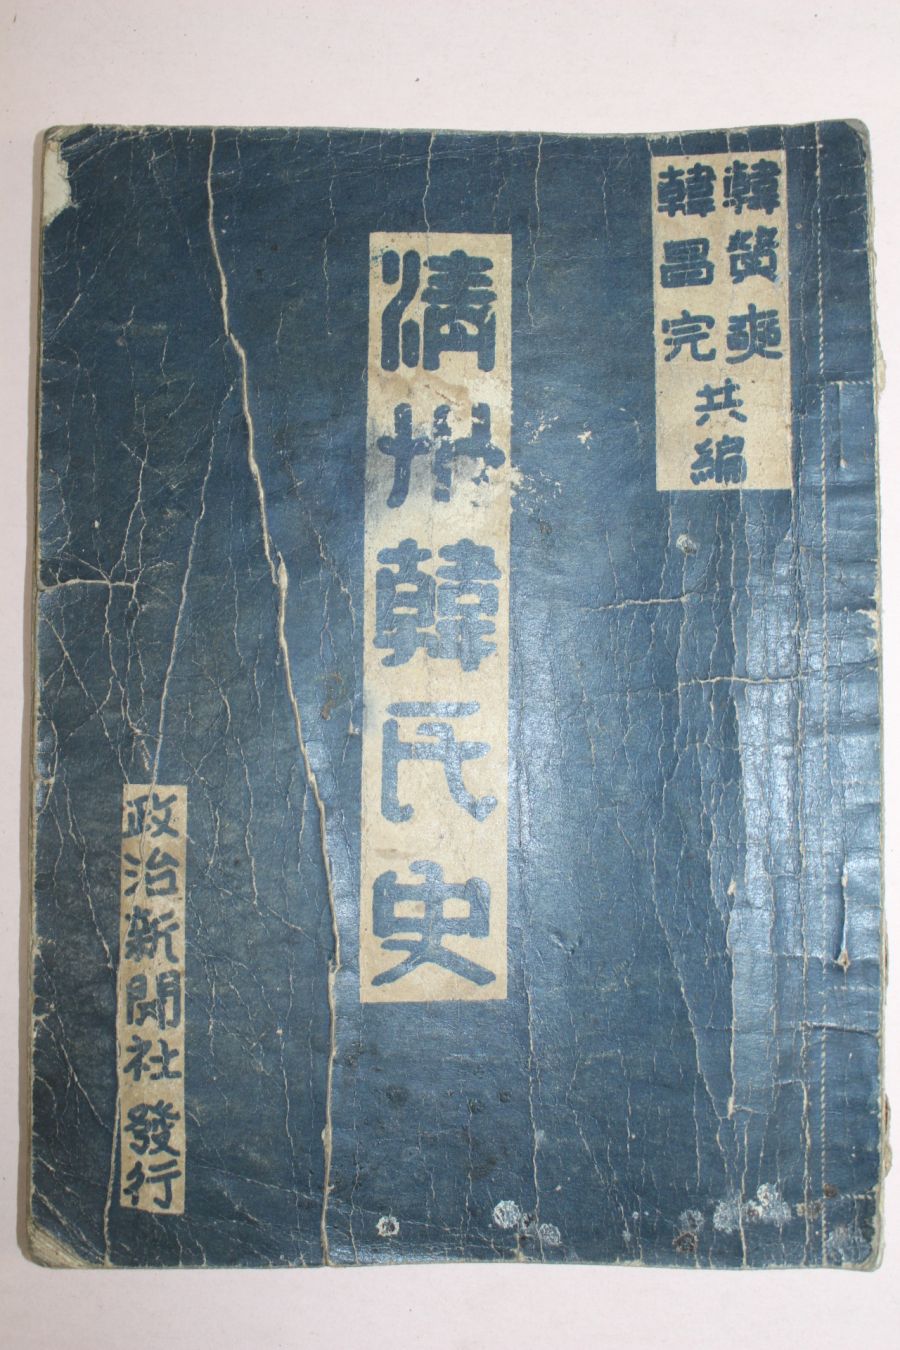 韓熒奭
韓昌完
共編
清州韓氏史
政治新聞社 發行